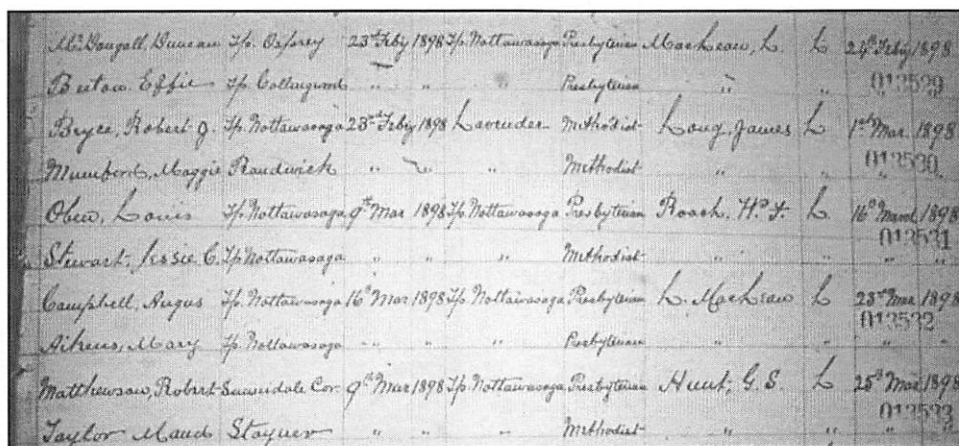 McDougall, Duncan Tp. Osprey 23rd Feby 1898 Tp. Nottawasaga Presbyterian MacLean, L. L 24th Feby 1898
Beeton, Effie Tp. Collingwood " " " Presbyterian " " 013529
Bryce, Robert J. Tp. Nottawasaga 23rd Feby 1898 Lavender Methodist Long, James L 1st Mar. 1898
Mumberd, Maggie Randwick " " " Methodist " " 013530
Oben, Louis Tp. Nottawasaga 9th Mar 1898 Tp. Nottawasaga Presbyterian Roach, L 16th March 1898
Stewart, Jessie C. Tp. Nottawasaga " " " Methodist " " 013531
Campbell, Angus Tp. Nottawasaga 16th Mar 1898 Tp. Nottawasaga Presbyterian L. MacLean L 23rd Mar 1898
Aikens, Mary Tp. Nottawasaga " " " Presbyterian " " 013532
Matthewson, Robert Sunnidale Cor. 9th Mar 1898 Tp. Nottawasaga Presbyterian Hunt, G. S. L 25th Mar 1898
Taylor Maud Stayner " " " Methodist " " 013533